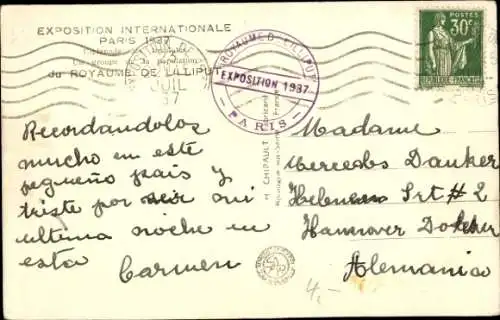 EXPOSITION INTERNATIONALE
PARIS 1937
Esplanade des Invalides
Un groupe de la population
du ROYAUME DE LILLIPUT
JUIL
37
ROYAUME DE LILLIPUT
EXPOSITION 1937
- PARIS -
POSTES
30c
H. CHIPAULT
Recordandolos
mucho en este
pequeño pais y
triste por ser mi
ultima noche en
esta Carmen
Madame
Mercedes Danker
Str # 2
Hannover
Alemania
4,-